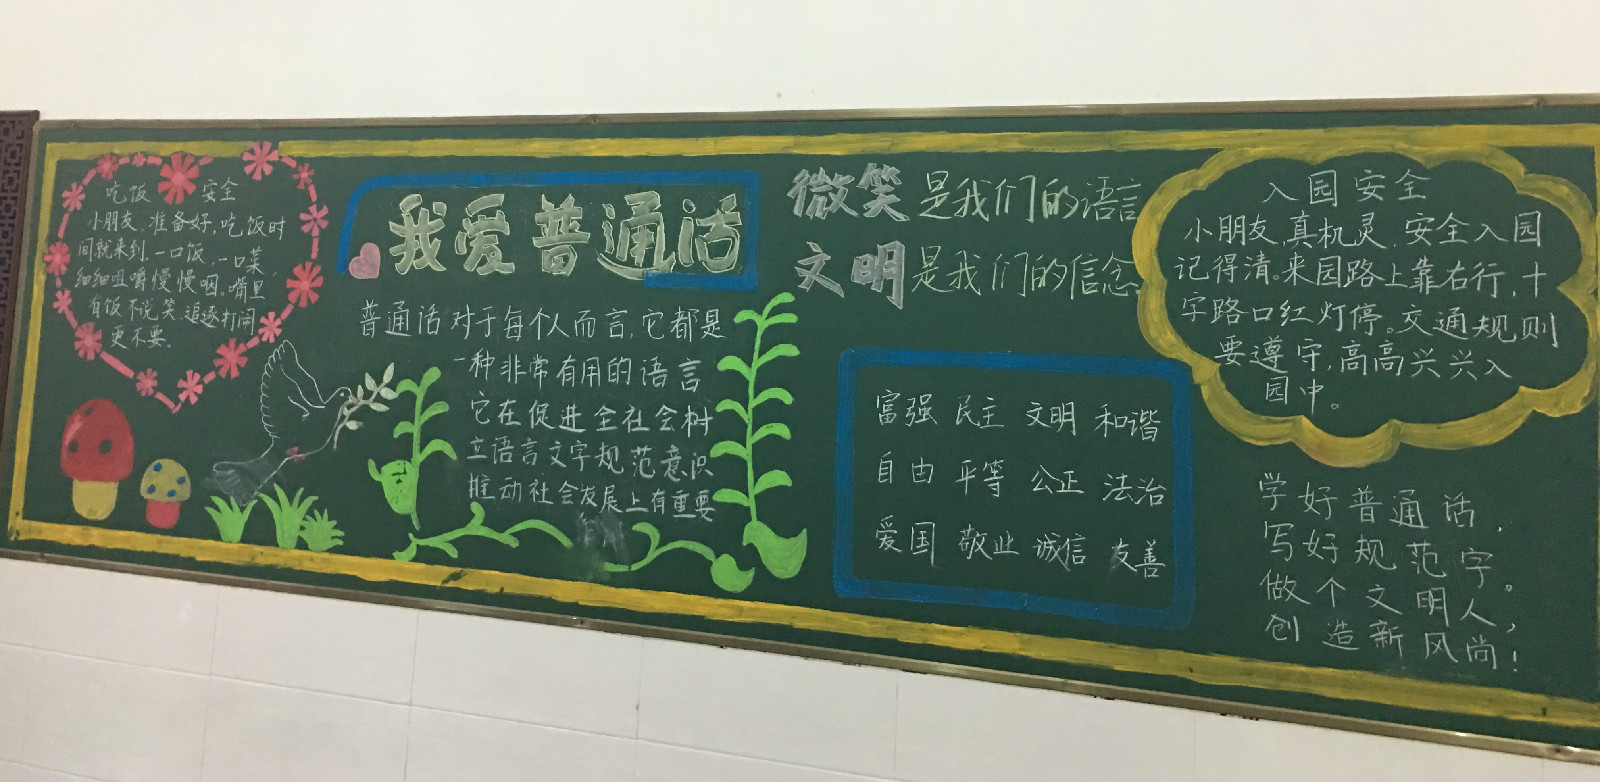 吃饭 安全
小朋友,准备好,吃饭时
间就来到,一口饭,一口菜,
细细咀嚼慢慢咽。嘴里
有饭不说笑,追逐打闹
更不要。
我爱普通话
普通话对于每个人而言,它都是
一种非常有用的语言
它在促进全社会树
立语言文字规范意识
推动社会发展上有重要
微笑是我们的语言
文明是我们的信念
富强 民主 文明 和谐
自由 平等 公正 法治
爱国 敬业 诚信 友善
入园安全
小朋友,真机灵,安全入园
记得清。来园路上靠右行,十
字路口红灯停。交通规则
要遵守,高高兴兴入
园中。
学好普通话,
写好规范字。
做个文明人,
创造新风尚!